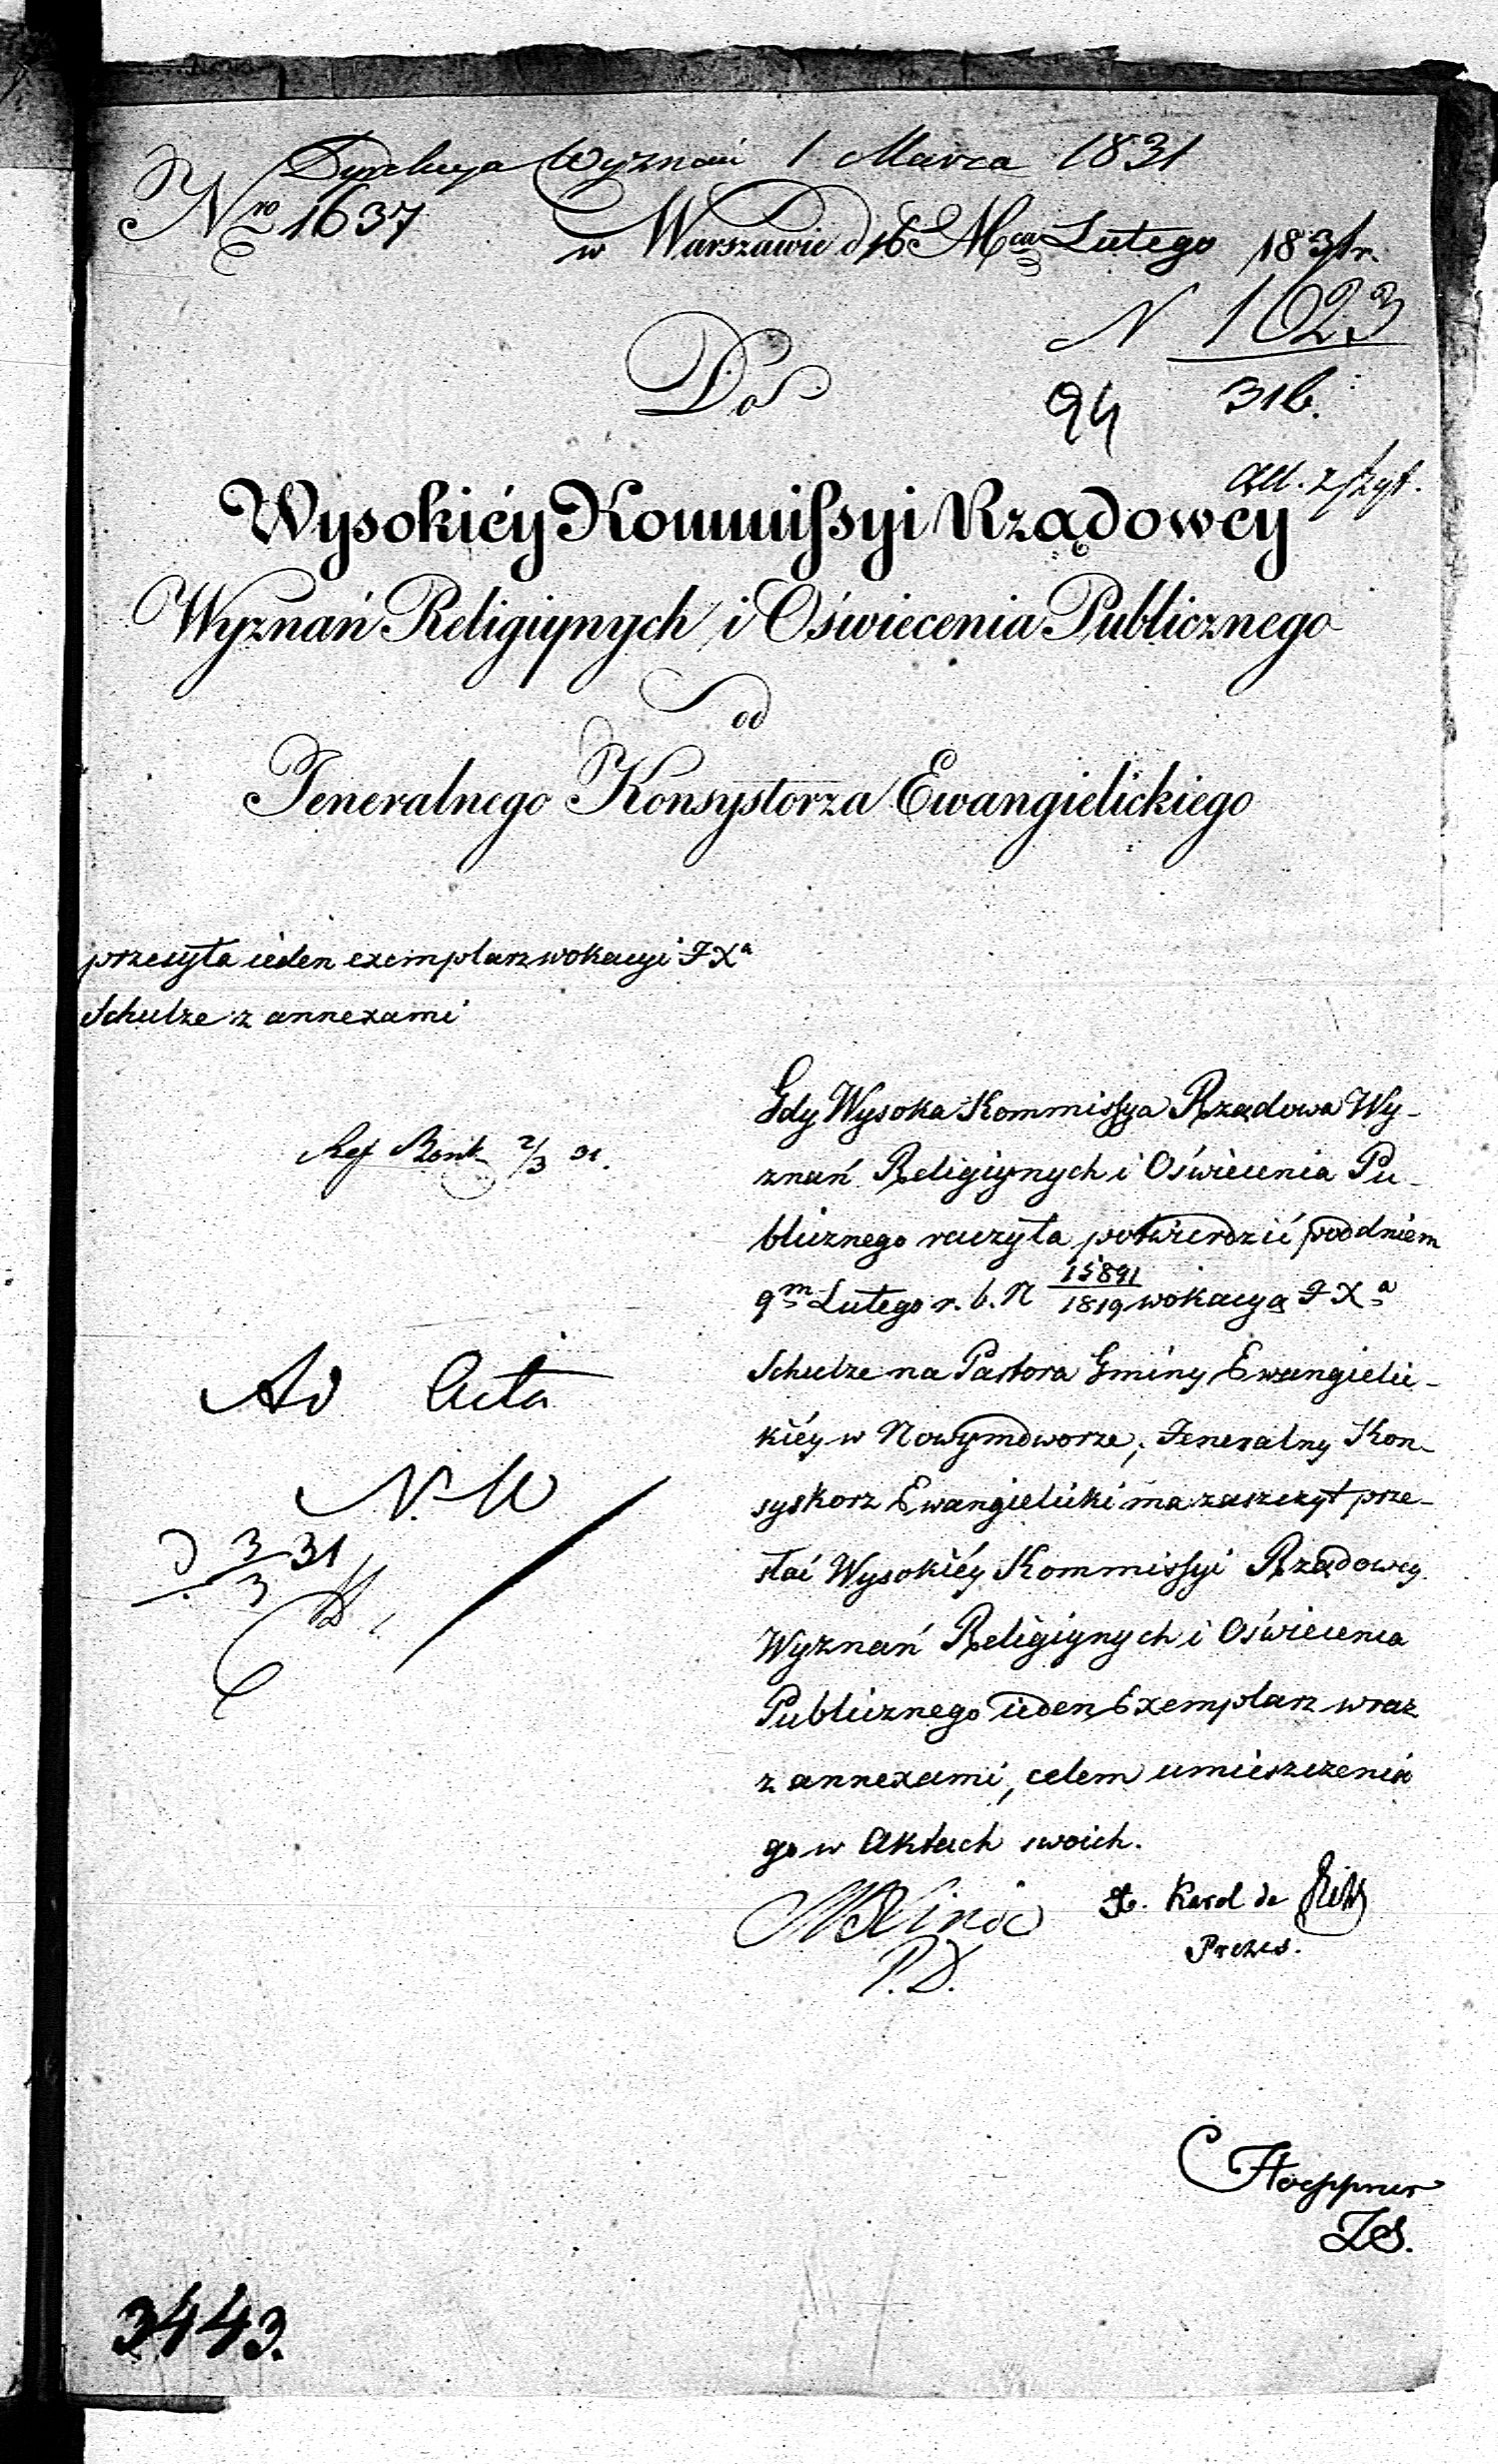 Dyrekcya Wyznań 1 Marca 1831
Nro 1637 w Warszawie d 16 Mca Lutego 1831 r.
N 1023
Do 94 31 b.
Wysokiéy Kommissyi Rządowéy
Wyznań Religiynych i Oświecenia Publicznego
od
Jeneralnego Konsystorza Ewangielickiego
przesyła ieden exemplarz wokacyi JXa
Schulze z annexami
Gdy Wysoka Kommissya Rządowa Wy-
Ref 2/3 31.
znań Religiynych i Oświecenia Pu-
blicznego raczyła potwierdzić pod dniem
9m Lutego r. b. N 15891/1819 wokacyą JXa
Schulze na Pastora Gminy Ewangielic-
Ad Acta
kiéy w Nowymdworze, Jeneralny Kon-
N. W
systorz Ewangielicki ma zaszczyt prze-
d 3/3 31
słać Wysokiéy Kommissyi Rządowey
Wyznań Religiynych i Oświecenia
Publicznego ieden Exemplarz wraz
z annexami, celem umieszczenia
go w Aktach swoich.
Karol de
P.D. Prezes.
Hoeppner
3443.